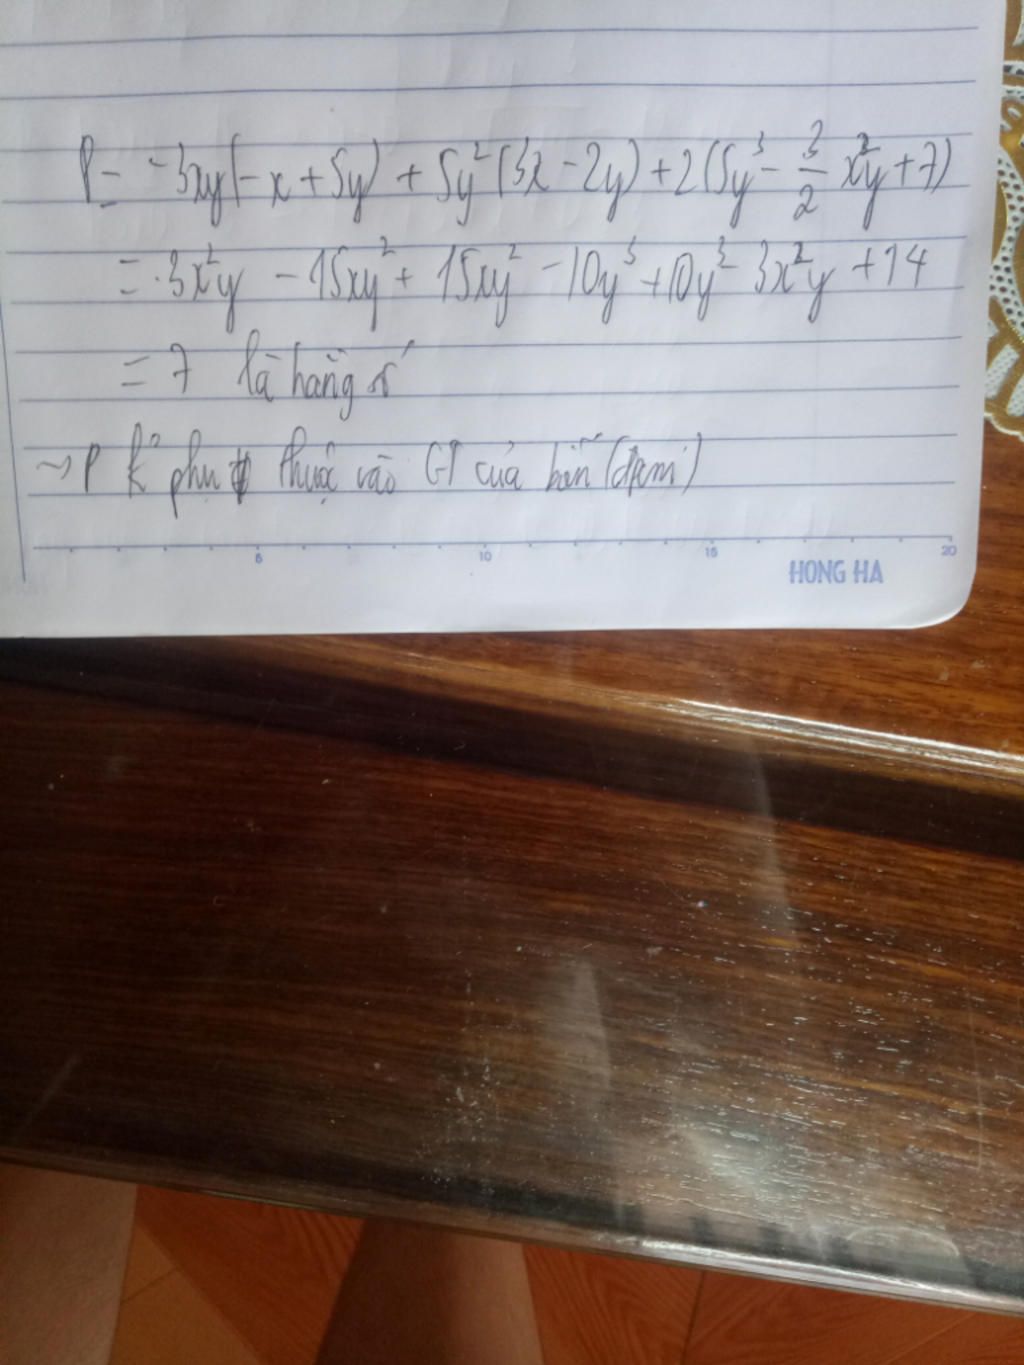 P = -3xy(-x + 5y) + 5y²(3x - 2y) + 2(5y³ - 3/2 x²y + 7)
= 3x²y - 15xy² + 15xy² - 10y³ + 10y³ - 3x²y + 14
= 7 là hằng số
~> P k° phụ thuộc vào GT của biến (đpcm)
5 10 15 20
HONG HA